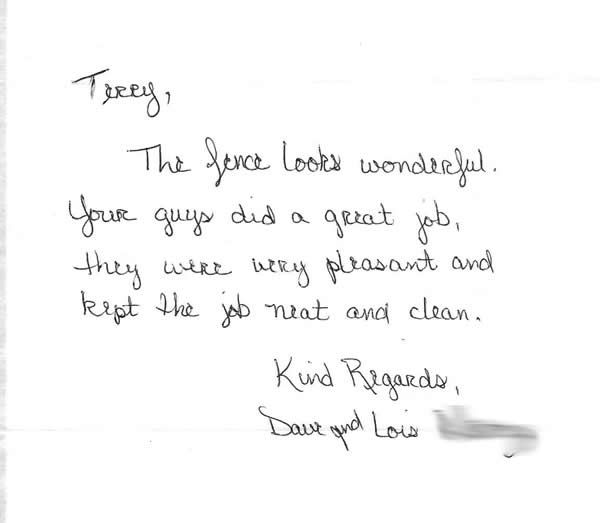 Terry,
The fence looks wonderful.
Your guys did a great job,
they were very pleasant and
kept the job neat and clean.
Kind Regards,
Dave and Lois